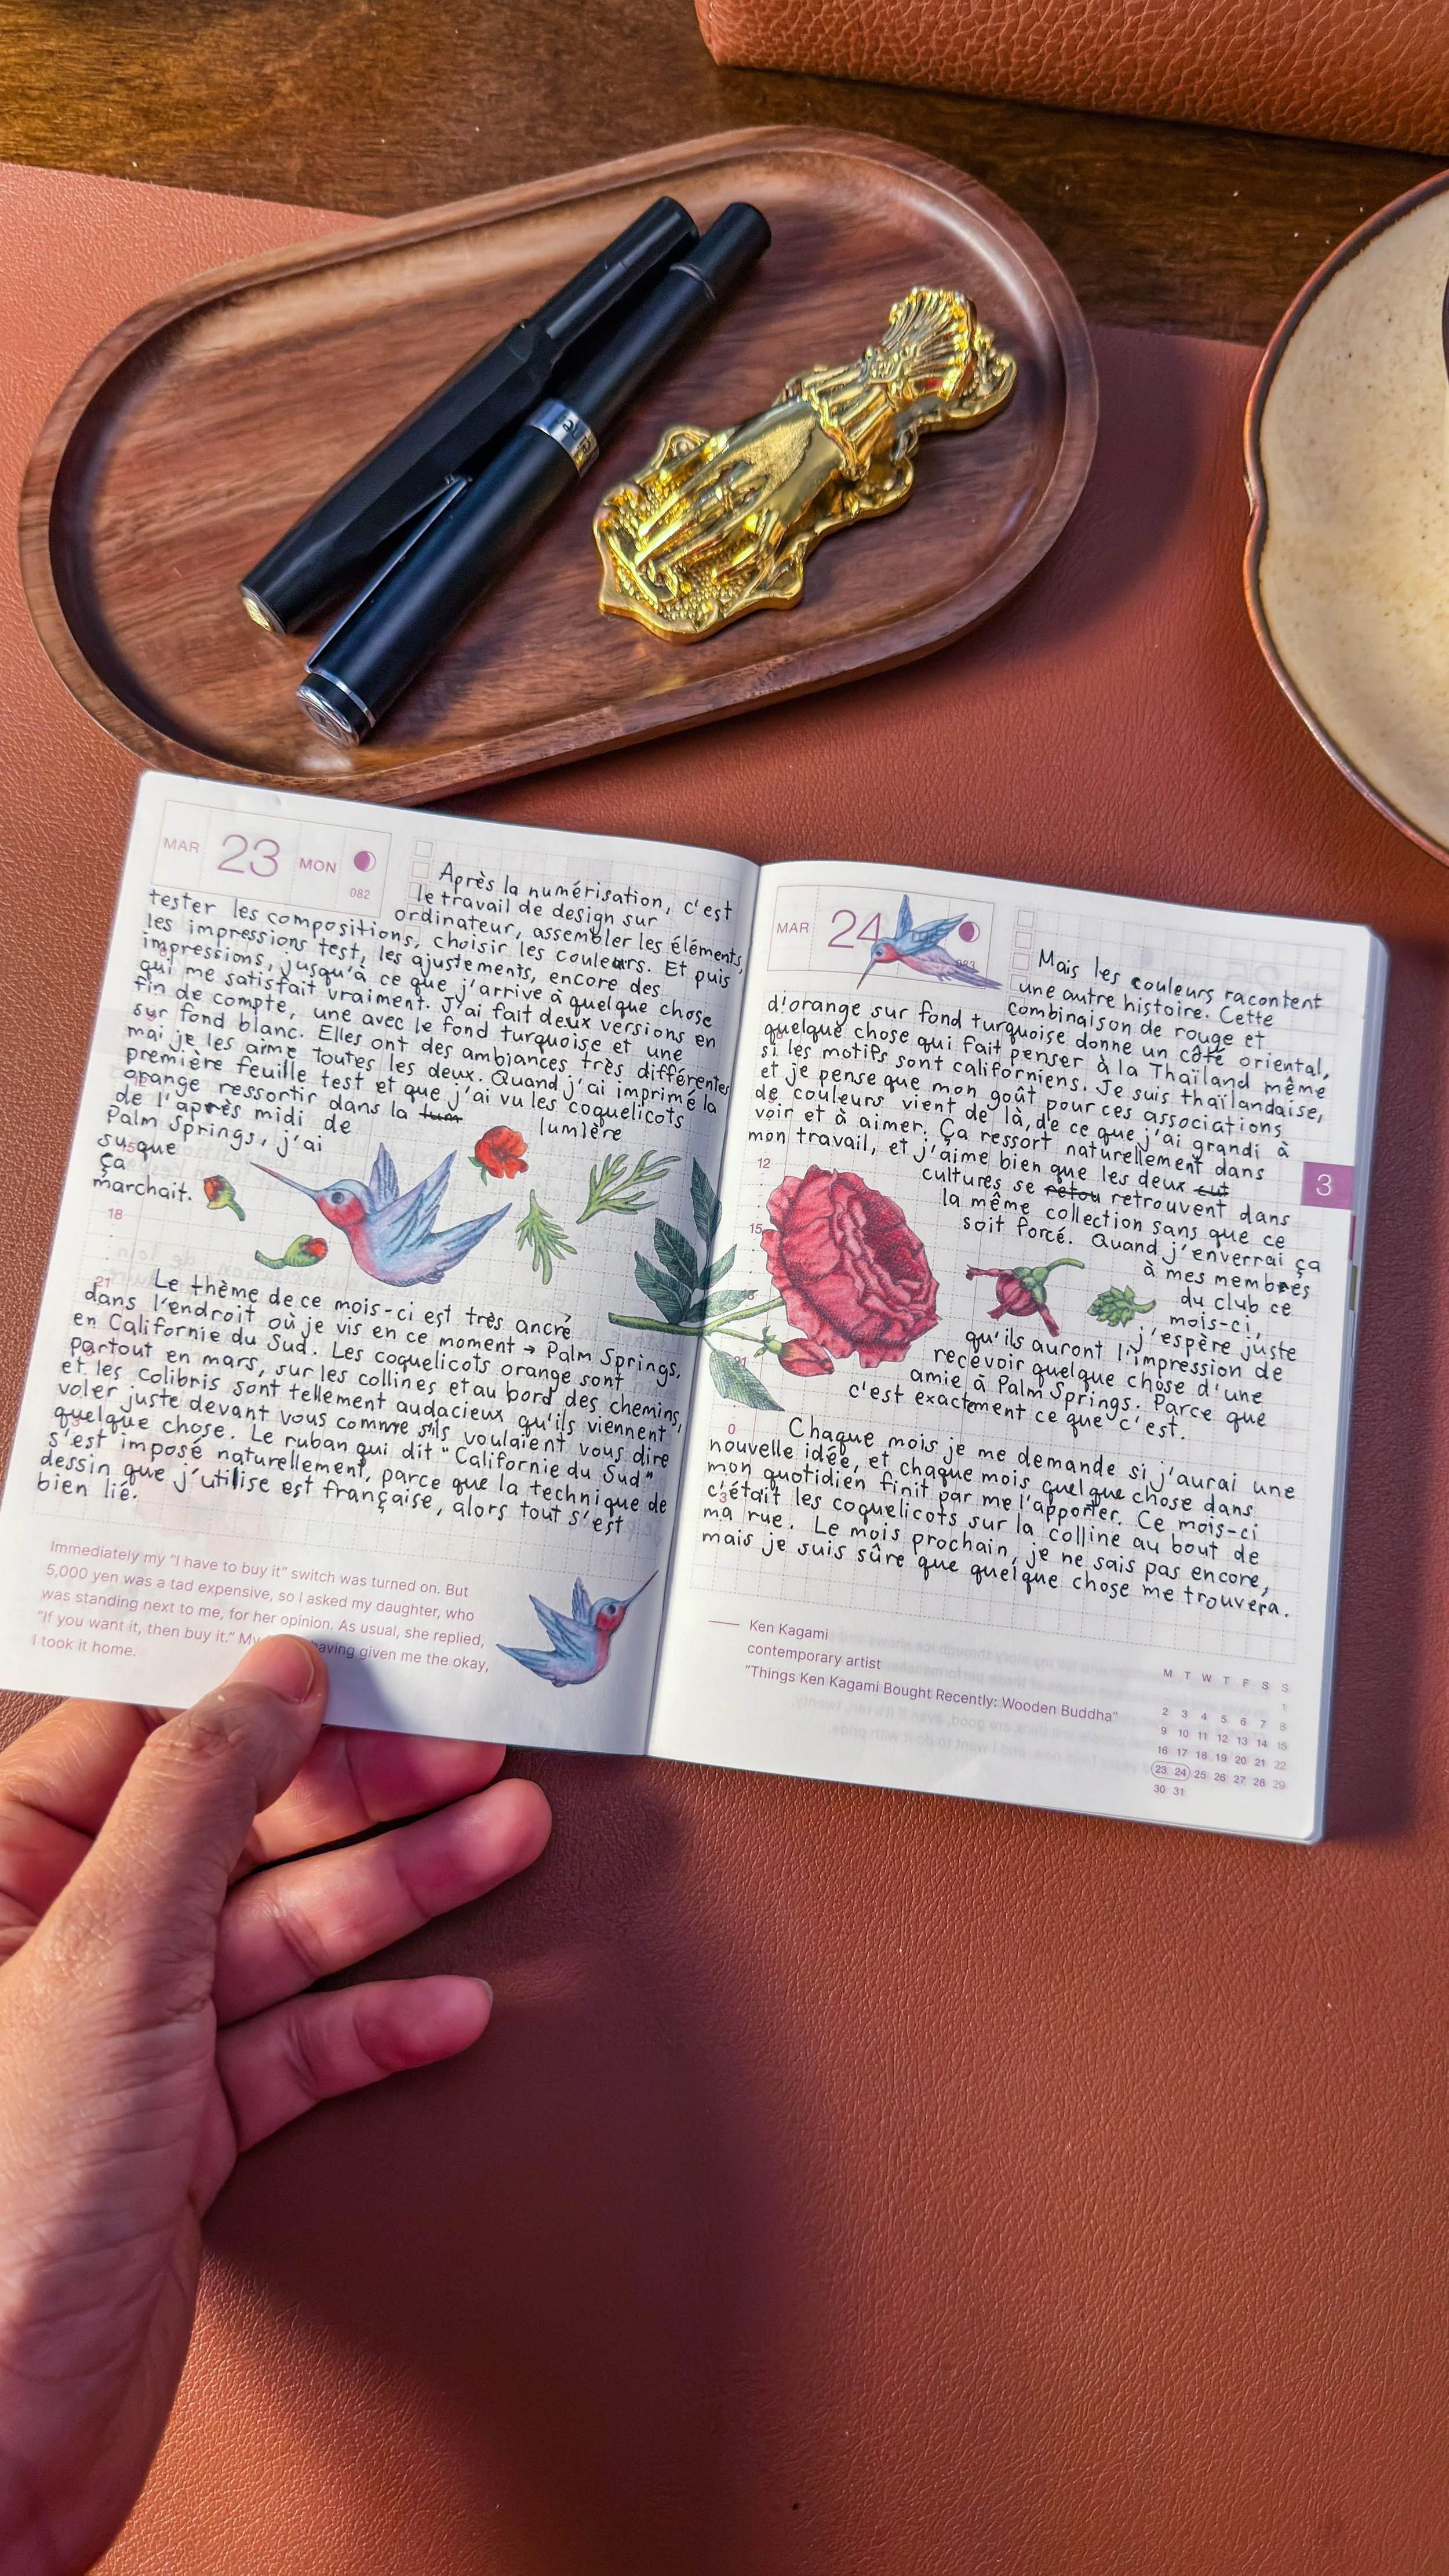 MAR 23 MON
082
Après la numérisation, c'est
le travail de design sur
ordinateur, assembler les éléments,
tester les compositions, choisir les couleurs. Et puis
les impressions test, les ajustements, encore des
impressions, jusqu'à ce que j'arrive à quelque chose
qui me satisfait vraiment. J'ai fait deux versions en
fin de compte, une avec le fond turquoise et une
sur fond blanc. Elles ont des ambiances très différentes
mai je les aime toutes les deux. Quand j'ai imprimé la
première feuille test et que j'ai vu les coquelicots
orange ressortir dans la lum lumière
de l'après midi de
Palm Springs, j'ai
su que
ça
marchait.
18
21
Le thème de ce mois-ci est très ancré
dans l'endroit où je vis en ce moment → Palm Springs,
en Californie du Sud. Les coquelicots orange sont
partout en mars, sur les collines et au bord des chemins,
et les colibris sont tellement audacieux qu'ils viennent
voler juste devant vous comme s'ils voulaient vous dire
quelque chose. Le ruban qui dit "Californie du Sud"
s'est imposé naturellement, parce que la technique de
dessin que j'utilise est française, alors tout s'est
bien lié.
Immediately my "I have to buy it" switch was turned on. But
5,000 yen was a tad expensive, so I asked my daughter, who
was standing next to me, for her opinion. As usual, she replied,
"If you want it, then buy it." My having given me the okay,
I took it home.
MAR 24
Mais les couleurs racontent
une autre histoire. Cette
combinaison de rouge et
d'orange sur fond turquoise donne un côté oriental,
quelque chose qui fait penser à la Thaïland même
si les motifs sont californiens. Je suis thaïlandaise,
et je pense que mon goût pour ces associations
de couleurs vient de là, de ce que j'ai grandi à
voir et à aimer. Ça ressort naturellement dans
mon travail, et j'aime bien que les deux cut
12
cultures se retou retrouvent dans
la même collection sans que ce
15
soit forcé. Quand j'enverrai ça
à mes membres
du club ce
mois-ci,
j'espère juste
qu'ils auront l'impression de
recevoir quelque chose d'une
amie à Palm Springs. Parce que
c'est exactement ce que c'est.
0
Chaque mois je me demande si j'aurai une
nouvelle idée, et chaque mois quelque chose dans
mon quotidien finit par me l'apporter. Ce mois-ci
3
c'était les coquelicots sur la colline au bout de
ma rue. Le mois prochain, je ne sais pas encore,
mais je suis sûre que quelque chose me trouvera.
Ken Kagami
contemporary artist
"Things Ken Kagami Bought Recently: Wooden Buddha"
M T W T F S S
1
2 3 4 5 6 7 8
9 10 11 12 13 14 15
16 17 18 19 20 21 22
23 24 25 26 27 28 29
30 31
3